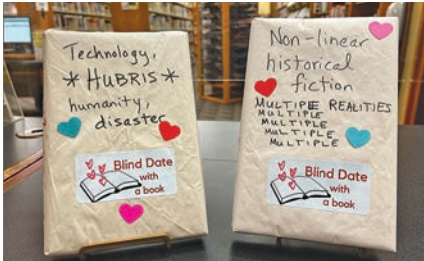 Technology,
*HUBRIS*
humanity,
disaster
Blind Date
with
a book
Non-linear
historical
fiction
MULTIPLE REALITIES
MULTIPLE
MULTIPLE
MULTIPLE
MULTIPLE
Blind Date
with
a book